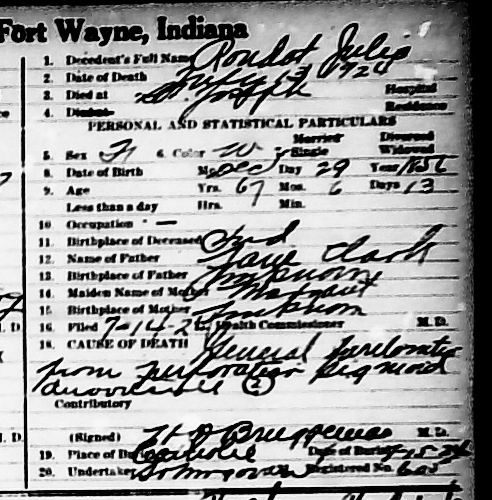 Fort Wayne, Indiana
1. Decedent's Full Name Roudot Julia
2. Date of Death July 13 1924
3. Died at St. Joseph Hospital
4. Died at Residence
PERSONAL AND STATISTICAL PARTICULARS
Married Divorced
5. Sex F 6. Color W 7. Single Widowed
8. Date of Birth Mo. Dec Day 29 Year 1856
9. Age Yrs. 67 Mos. 6 Days 13
Less than a day Hrs. Min.
10. Occupation —
11. Birthplace of Deceased Ind
12. Name of Father Clark
13. Birthplace of Father Unknown
14. Maiden Name of Mother
15. Birthplace of Mother Unknown
16. Filed 7-14-24 Health Commissioner M. D.
18. CAUSE OF DEATH General Peritonitis
from Perforation Sigmoid
Contributory
(Signed) H O Bruggeman M. D.
19. Place of Burial Catholic Date of Burial 7-15-24
20. Undertaker Registered No. 603